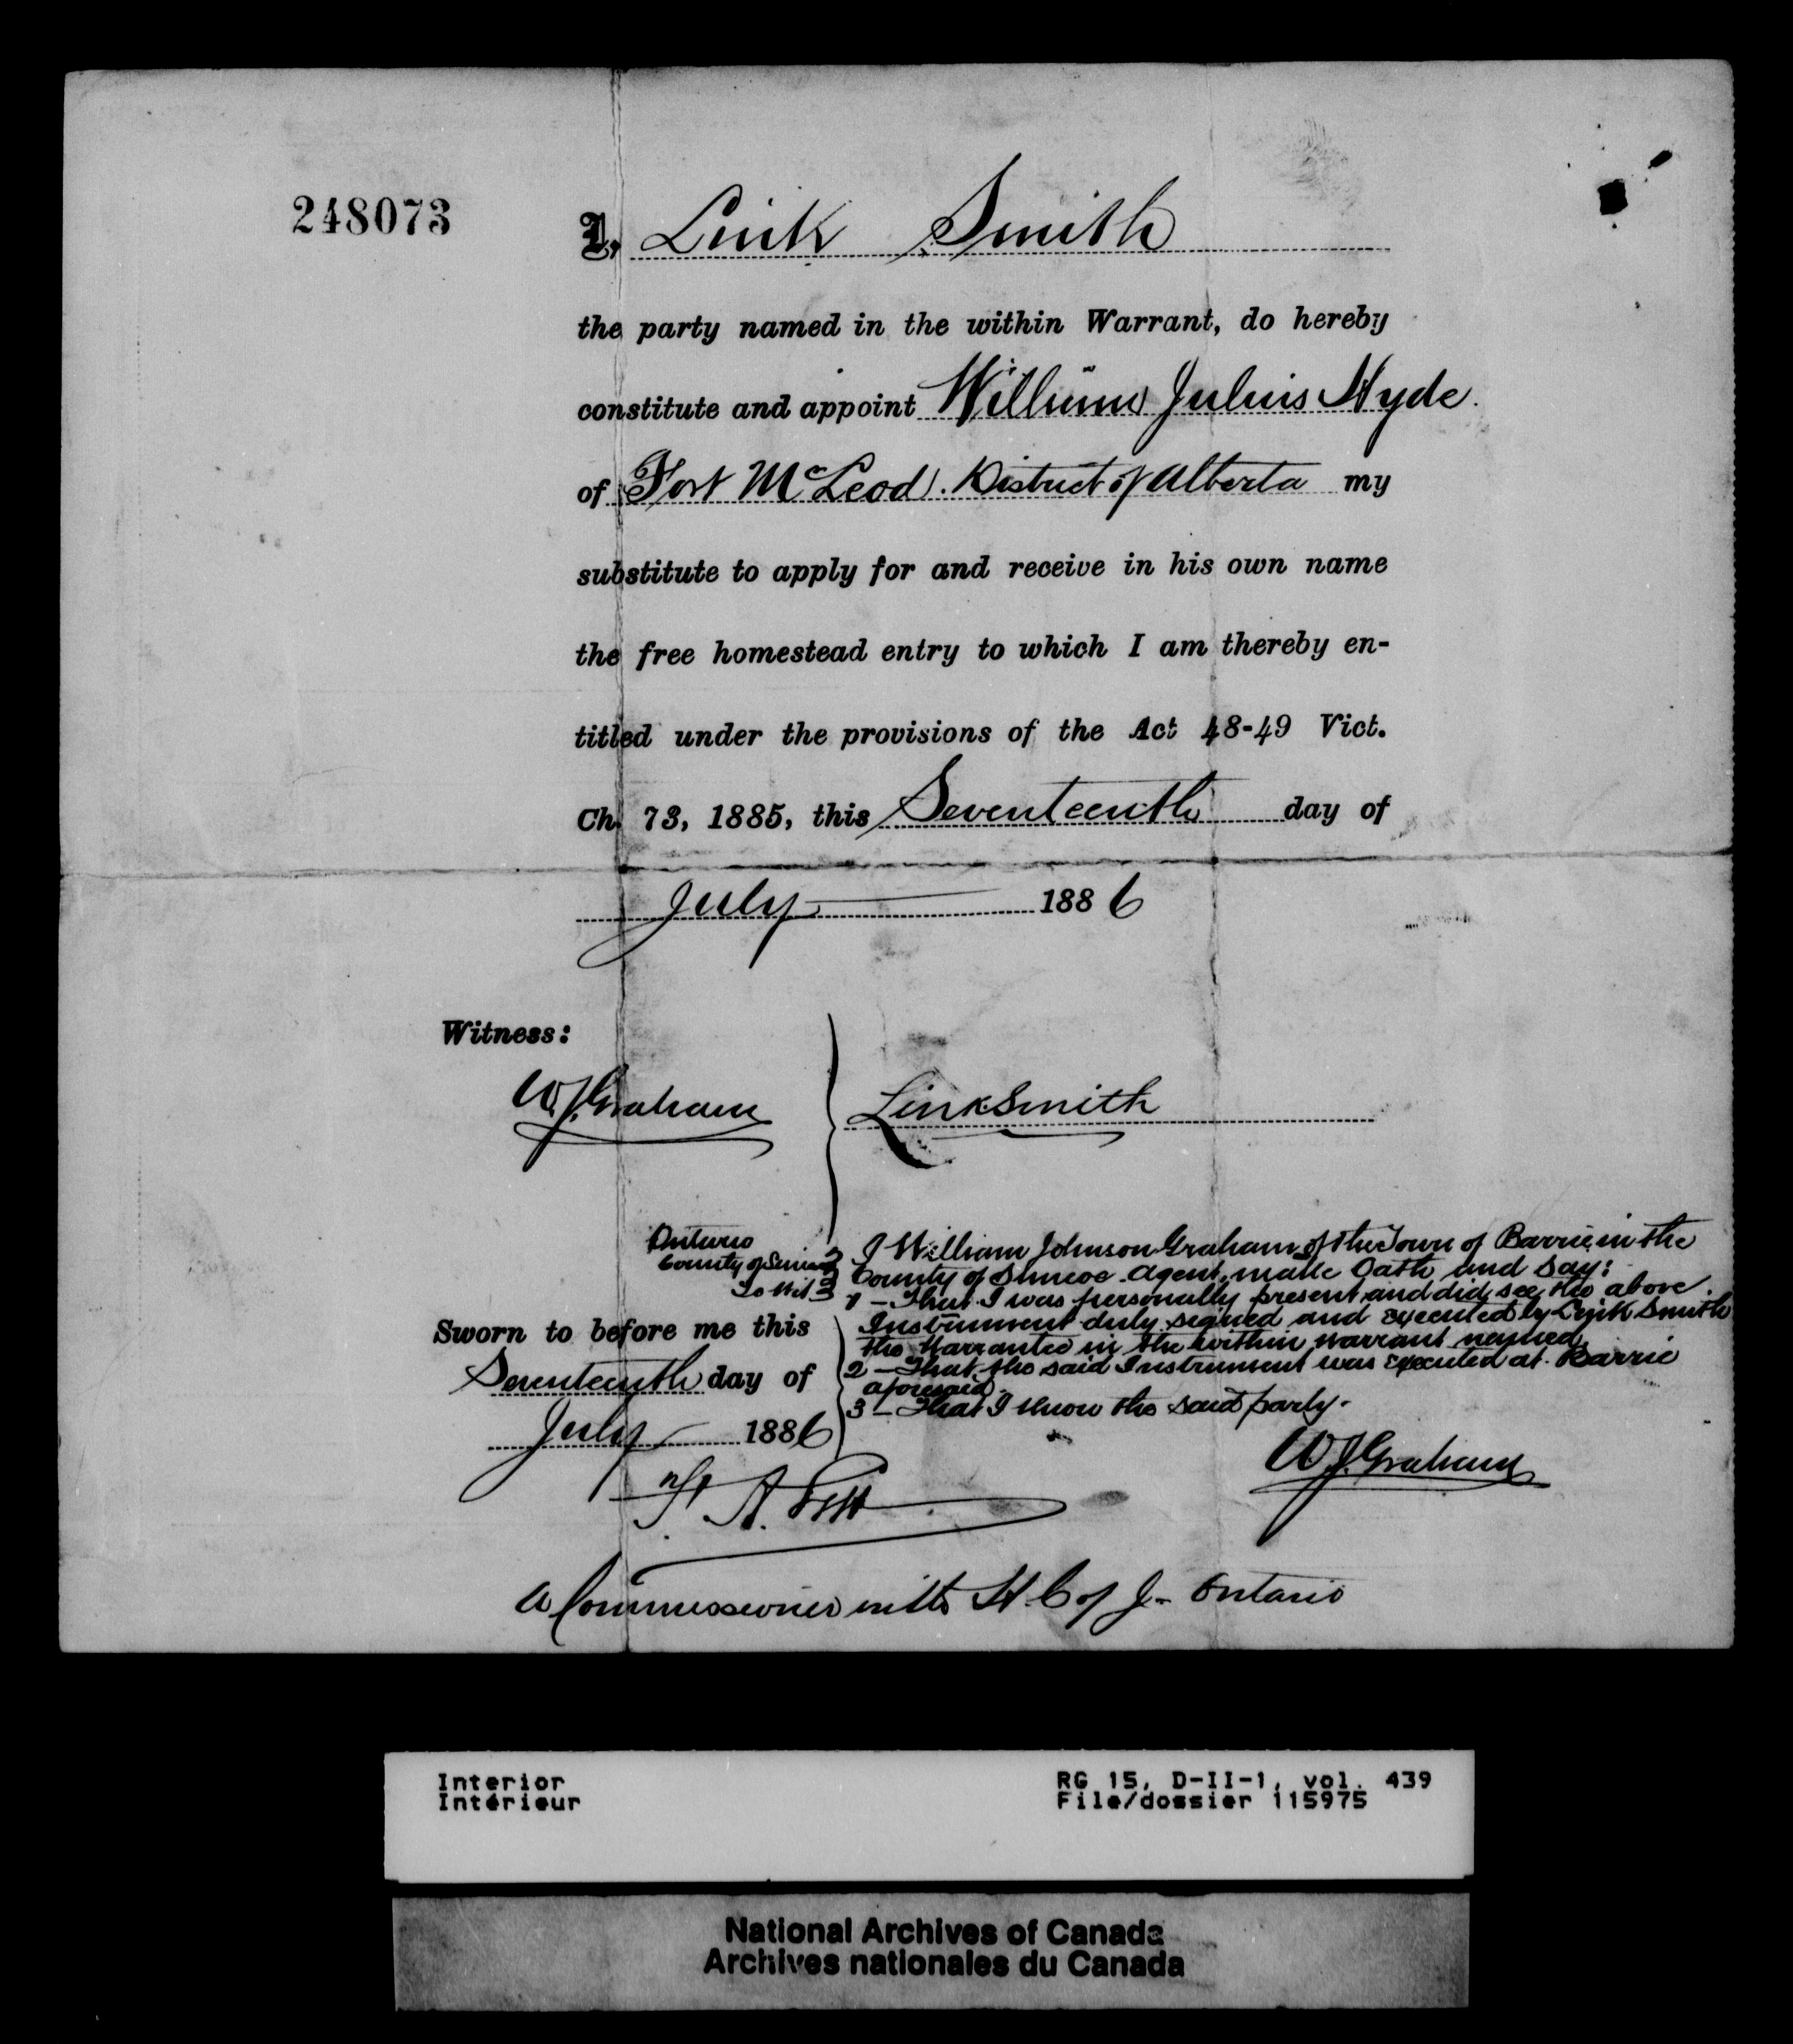 248073
I, Link Smith
the party named in the within Warrant, do hereby
constitute and appoint William Julius Hyde.
of Fort McLeod. District of Alberta my
substitute to apply for and receive in his own name
the free homestead entry to which I am thereby en-
titled under the provisions of the Act 48-49 Vict.
Ch. 73, 1885, this Seventeenth day of
July 1886
Witness:
W.J. Graham
Link Smith
Ontario
County of Simcoe
To Wit
I William Johnson Graham of the Town of Barrie in the
County of Simcoe Agent, make Oath and say:
1 - That I was personally present and did see the above
Instrument duly signed and executed by Link Smith
the Warrantee in the within warrant named.
2 - That the said Instrument was executed at Barrie
aforesaid.
3 - That I know the said party.
Sworn to before me this
Seventeenth day of
July 1886
W.J. Graham
A Commissioner in the H. C of J. Ontario
Interior
Intérieur
RG 15, D-II-1, vol. 439
File/dossier 115975
National Archives of Canada
Archives nationales du Canada